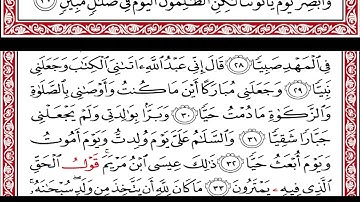 وَأَبْصِرْ يَوْمَ يَأْتُونَنَا لَٰكِنِ ٱلظَّٰلِمُونَ ٱلْيَوْمَ فِى ضَلَٰلٍ مُّبِينٍ
فِى ٱلْمَهْدِ صَبِيًّا ٢٨ قَالَ إِنِّى عَبْدُ ٱللَّهِ ءَاتَىٰنِىَ ٱلْكِتَٰبَ وَجَعَلَنِى
نَبِيًّا ٢٩ وَجَعَلَنِى مُبَارَكًا أَيْنَ مَا كُنتُ وَأَوْصَٰنِى بِٱلصَّلَوٰةِ
وَٱلزَّكَوٰةِ مَا دُمْتُ حَيًّا ٣٠ وَبَرًّۢا بِوَٰلِدَتِى وَلَمْ يَجْعَلْنِى
جَبَّارًا شَقِيًّا ٣١ وَٱلسَّلَٰمُ عَلَىَّ يَوْمَ وُلِدتُّ وَيَوْمَ أَمُوتُ
وَيَوْمَ أُبْعَثُ حَيًّا ٣٢ ذَٰلِكَ عِيسَى ٱبْنُ مَرْيَمَ قَوْلُ ٱلْحَقِّ
ٱلَّذِى فِيهِ يَمْتَرُونَ ٣٣ مَا كَانَ لِلَّهِ أَن يَتَّخِذَ مِن وَلَدٍ سُبْحَٰنَهُۥٓ